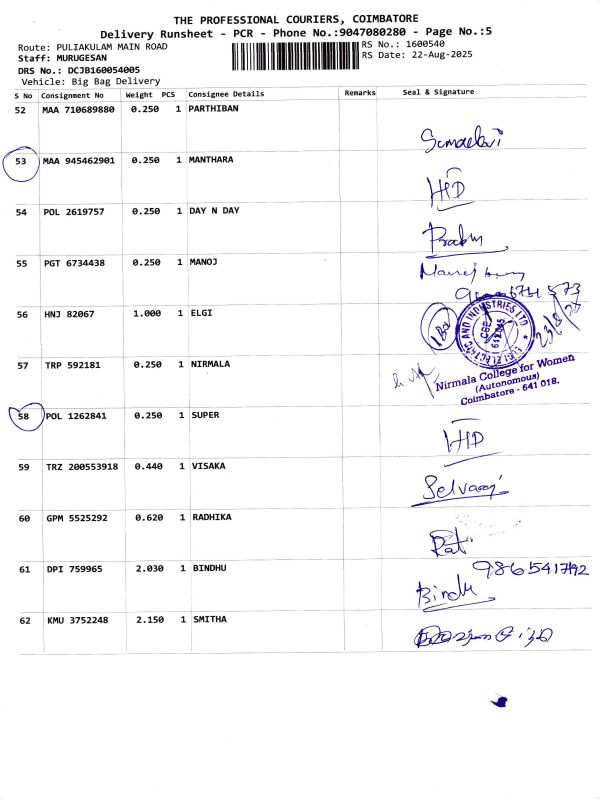 THE PROFESSIONAL COURIERS, COIMBATORE
Delivery Runsheet - PCR - Phone No.:9047080280 - Page No.:5
Route: PULIAKULAM MAIN ROAD RS No.: 1600540
Staff: MURUGESAN RS Date: 22-Aug-2025
DRS No.: DCJB160054005
Vehicle: Big Bag Delivery
S No Consignment No Weight PCS Consignee Details Remarks Seal & Signature
52 MAA 710689880 0.250 1 PARTHIBAN
53 MAA 945462901 0.250 1 MANTHARA
HD
54 POL 2619757 0.250 1 DAY N DAY
Prabhu
55 PGT 6734438 0.250 1 MANOJ
Manoj
56 HNJ 82067 1.000 1 ELGI
57 TRP 592181 0.250 1 NIRMALA
Nirmala College for Women
(Autonomous)
Coimbatore - 641 018.
58 POL 1262841 0.250 1 SUPER
HD
59 TRZ 200553918 0.440 1 VISAKA
Selvaraj
60 GPM 5525292 0.620 1 RADHIKA
61 DPI 759965 2.030 1 BINDHU
Bindh
62 KMU 3752248 2.150 1 SMITHA